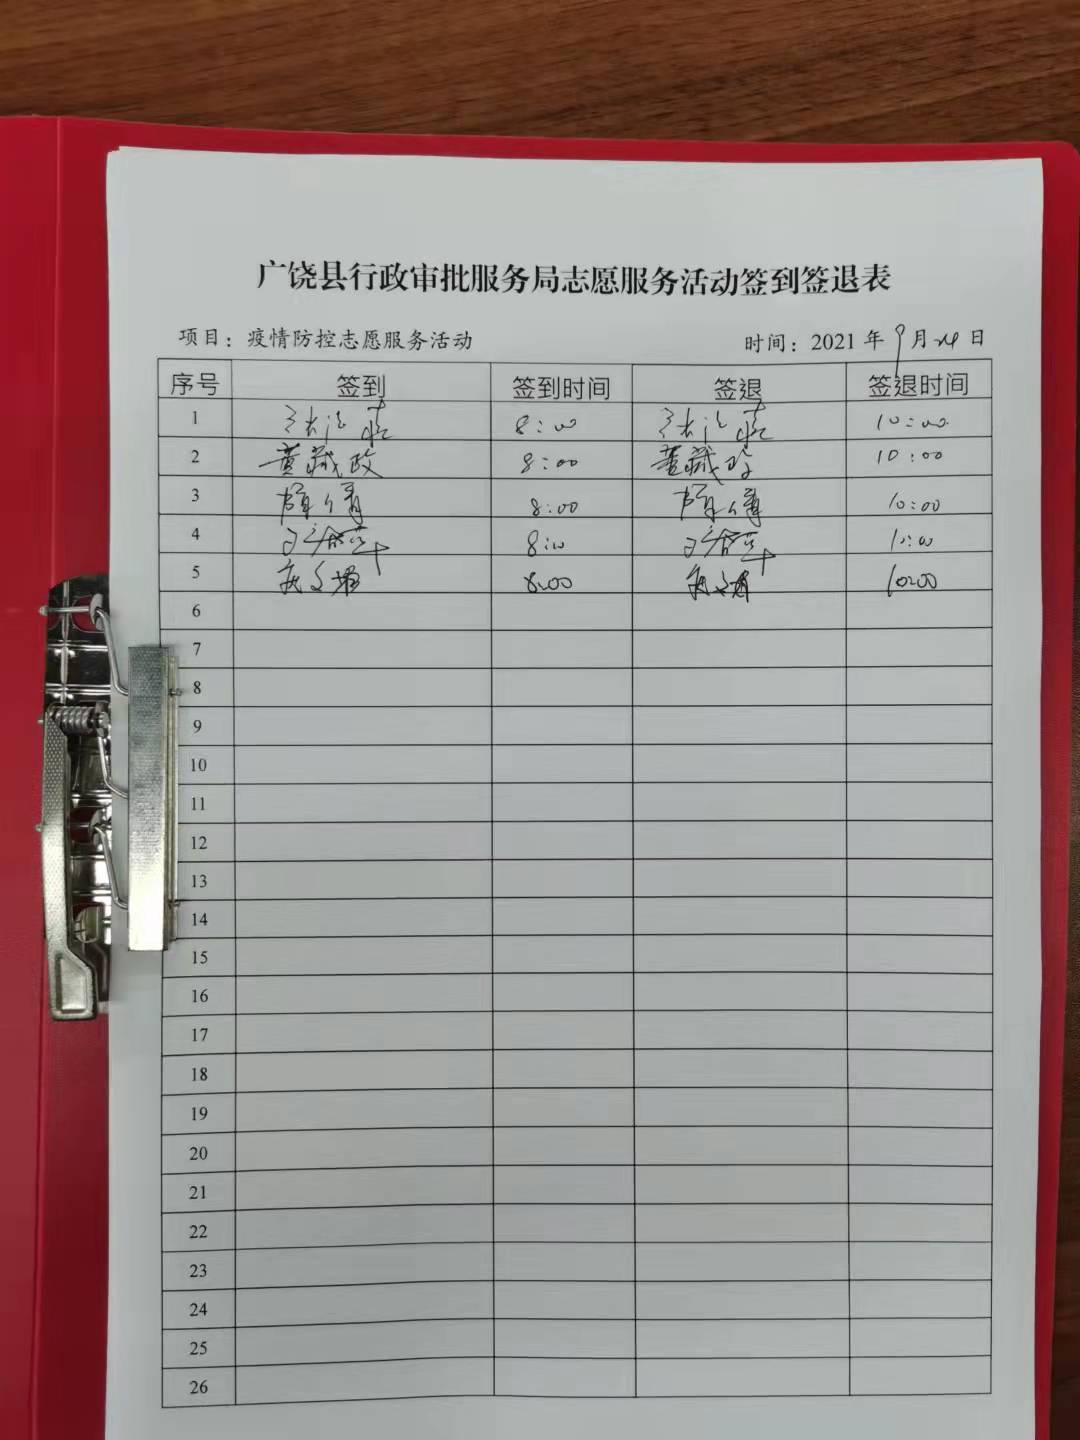 广饶县行政审批服务局志愿服务活动签到签退表
项目：疫情防控志愿服务活动 时间：2021 年 9 月 24 日
序号 签到 签到时间 签退 签退时间
1 8:00 10:00
2 黄藏政 8:00 黄藏政 10:00
3 8:00 10:00
4 8:00 10:00
5 8:00 10:00
6
7
8
9
10
11
12
13
14
15
16
17
18
19
20
21
22
23
24
25
26